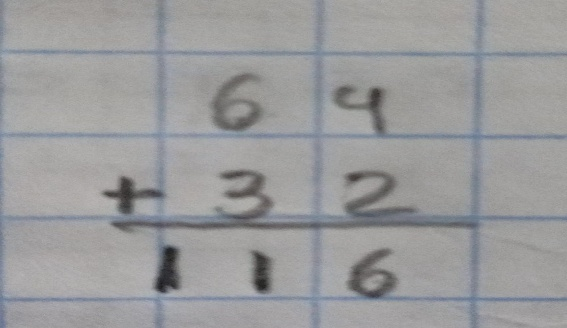 64
+ 32
116